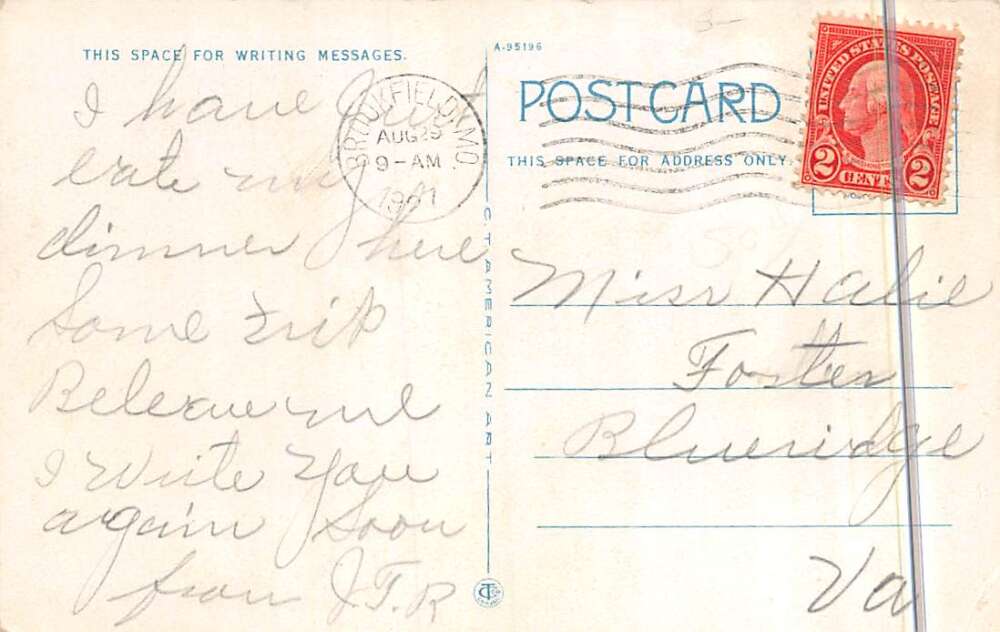 THIS SPACE FOR WRITING MESSAGES.
I have Just
eate my
dinner here
Some Trip
Beleave me
I Write You
again Soon
from J.T.R
BROOKFIELD, MO.
AUG
9-AM
C.T. AMERICAN ART
A-95196
POST CARD
THIS SPACE FOR ADDRESS ONLY.
UNITED STATES POSTAGE
2 CENTS 2
Miss Halie
Foster
Blueridge
Va